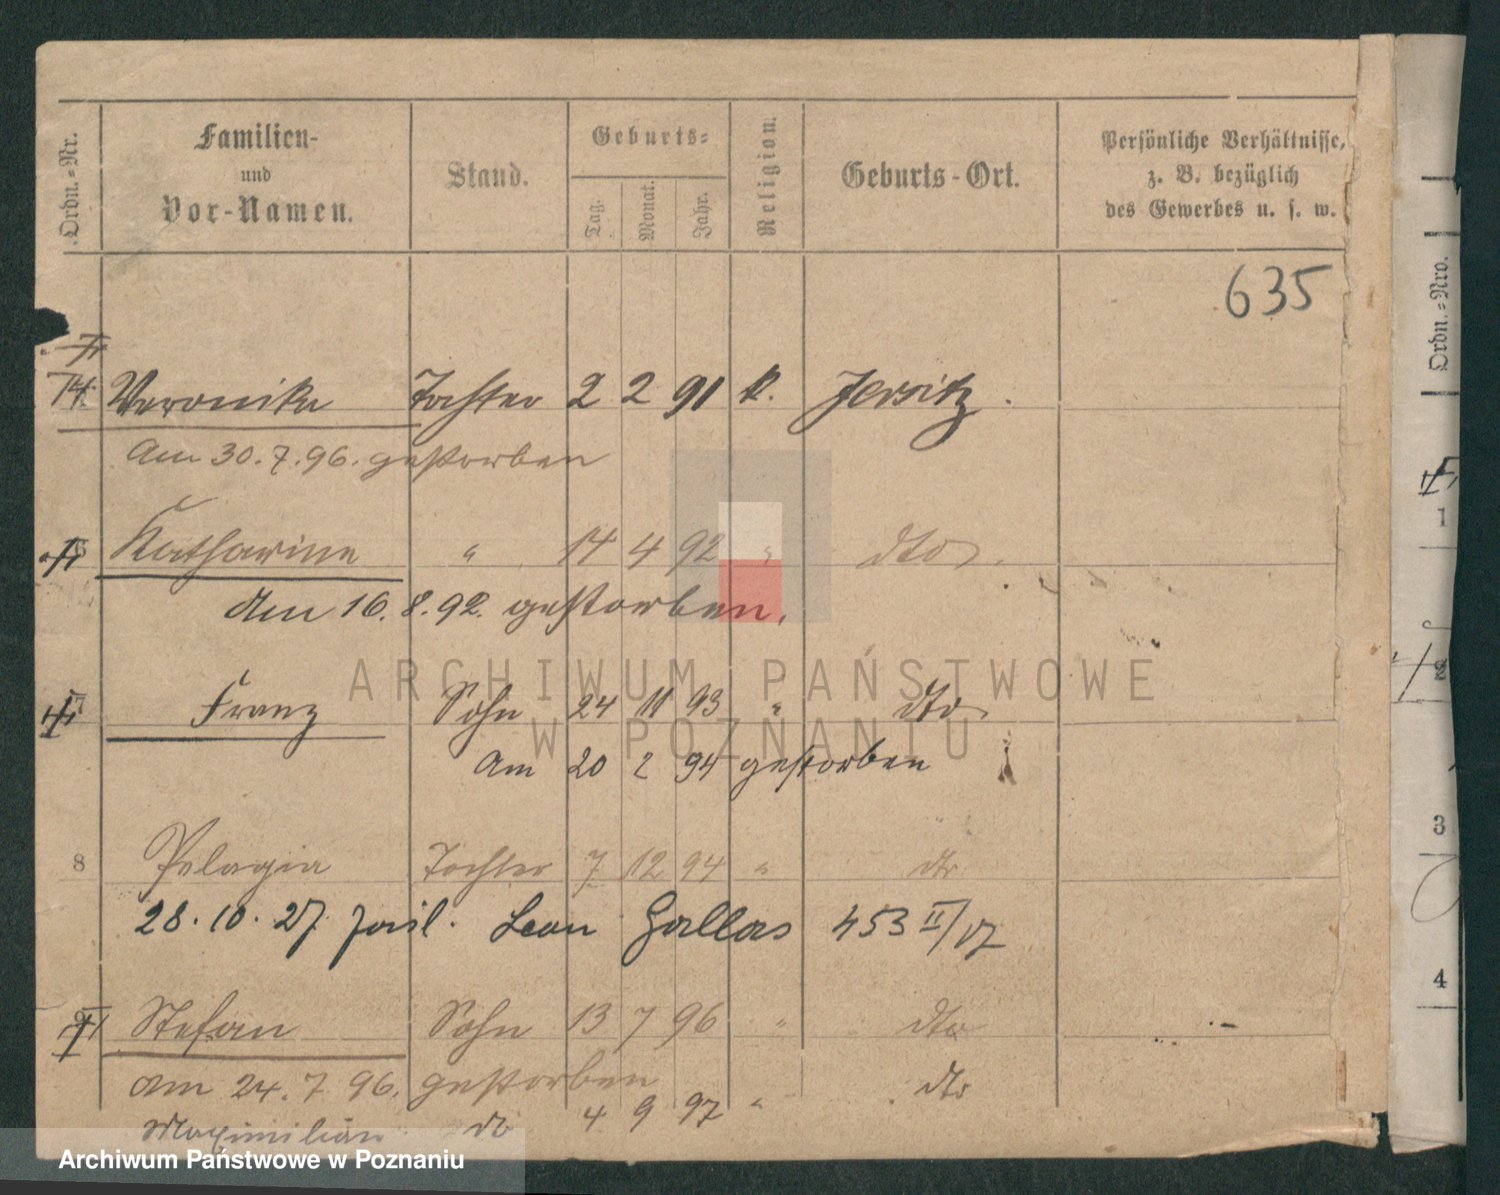 Ordn.-Nr. Familien- und Vor-Namen. Stand. Geburts- Tag. Monat. Jahr. Religion. Geburts-Ort. Persönliche Verhältnisse, z. B. bezüglich des Gewerbes u. s. w.
635
Veronika Tochter 2 2 91 k. Jersitz.
Am 30.7.96. gestorben
Katharina " 14 4 92 " dto.
Am 16.8.92. gestorben.
7 Franz Sohn 24 11 93 " dto
Am 20 2 94 gestorben
8 Pelagia Tochter 7 12 94 " dto
28.10.27. Leon Gallas 453 II/17
9 Stefan Sohn 13 7 96 " dto
Am 24.7.96. gestorben
Maximilian do 4 9 97 " dto
Ordn.-Nro.
1
2
3
4
ARCHIWUM PAŃSTWOWE
W POZNANIU
Archiwum Państwowe w Poznaniu